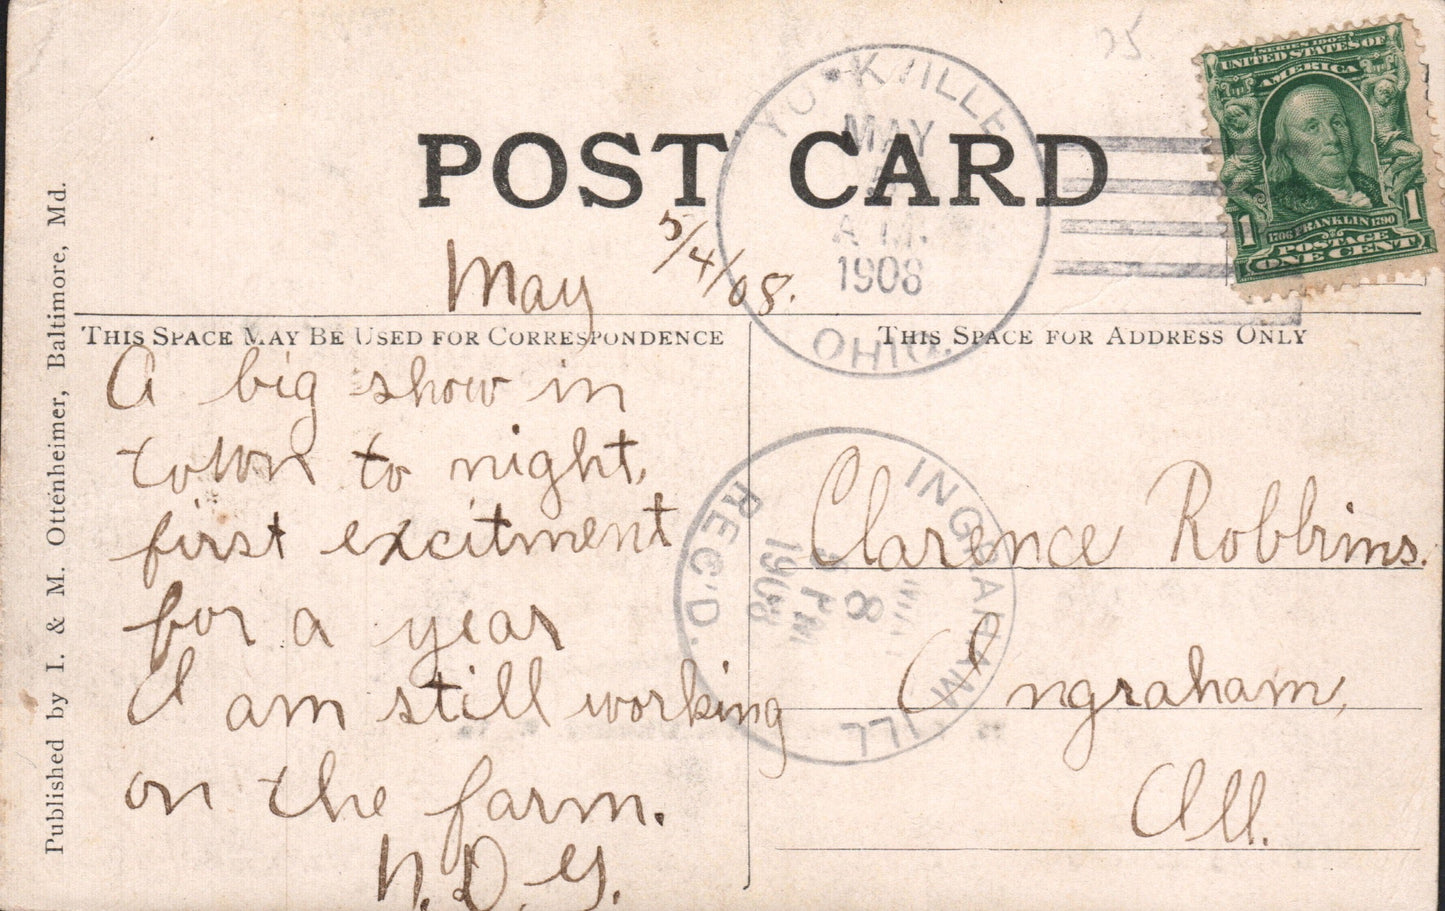 POST CARD
YORKVILLE
MAY
A.M.
1908
OHIO.
SERIES 1902
UNITED STATES OF
AMERICA
1706 FRANKLIN 1790
POSTAGE
ONE CENT
1 1
May 5/4/08.
THIS SPACE MAY BE USED FOR CORRESPONDENCE
A big show in
town to night,
first excitment
for a year
I am still working
on the farm.
N.D.G.
THIS SPACE FOR ADDRESS ONLY
Clarence Robbins.
Ingraham,
Ill.
INGRAHAM ILL.
8
PM
1908
REC'D.
Published by I. & M. Ottenheimer, Baltimore, Md.